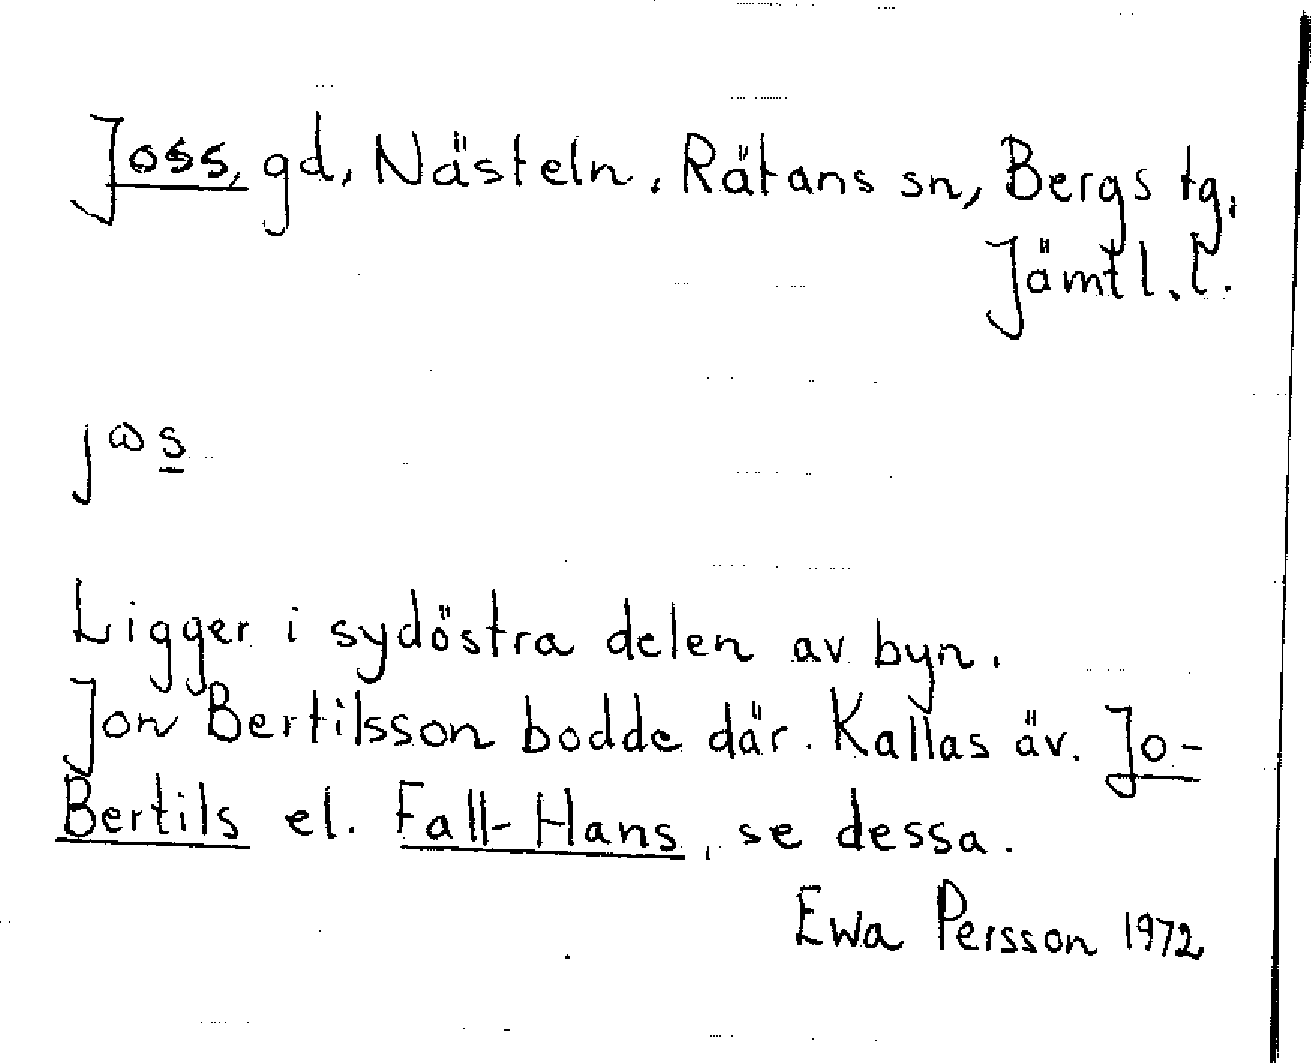 Joss, gd, Nästeln, Rätans sn, Bergs tg,
Jämtl. l.
jɷs
Ligger i sydöstra delen av byn.
Jon Bertilsson bodde där. Kallas äv. Jo-
Bertils el. Fall-Hans, se dessa.
Ewa Persson 1972